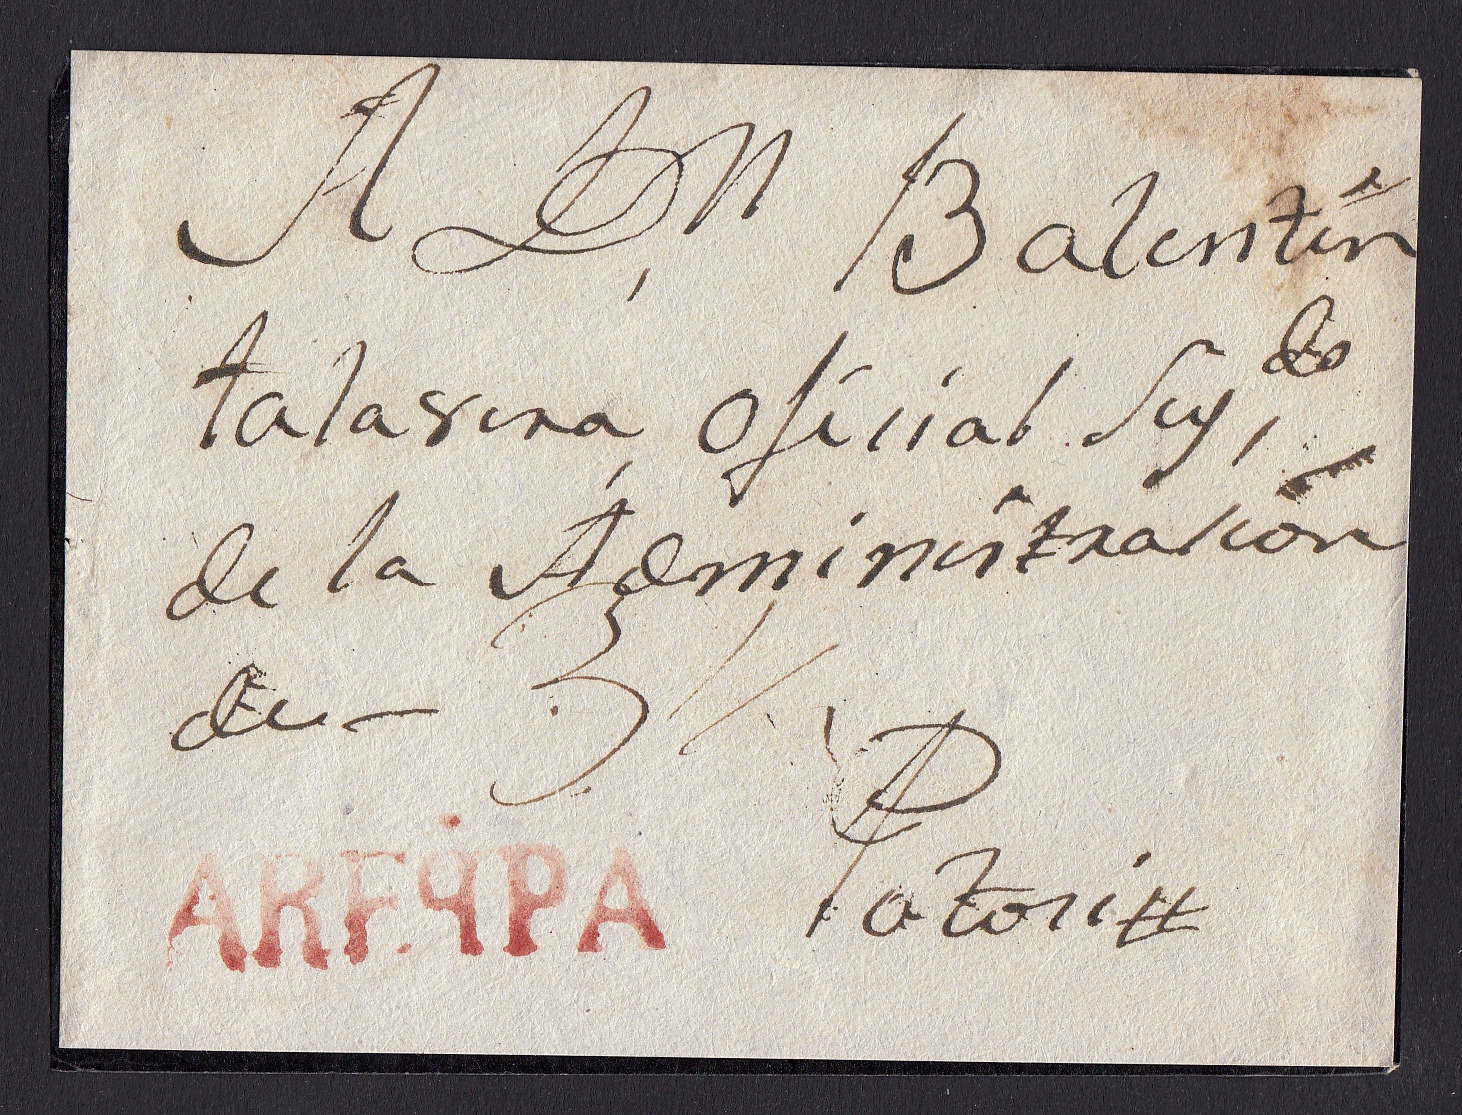 A Dn Balentin
talavera, oficial Seg,do
de la Administracion
de— 3 1/
Potosi
AREqPA